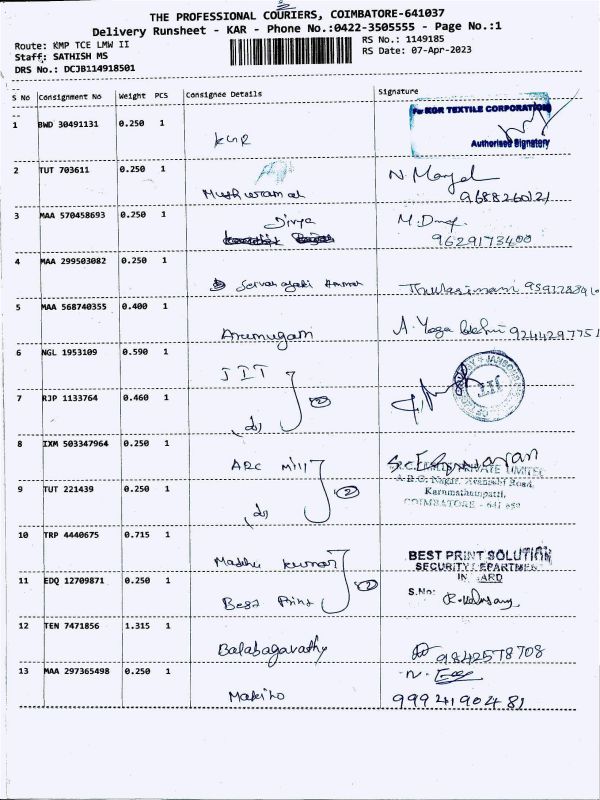 THE PROFESSIONAL COURIERS, COIMBATORE-641037
Delivery Runsheet - KAR - Phone No.:0422-3505555 - Page No.:1
Route: KMP TCE LMW II
RS No.: 1149185
Staff: SATHISH MS
RS Date: 07-Apr-2023
DRS No.: DCJB114918501
S No Consignment No Weight PCS Consignee Details Signature
1 BWD 30491131 0.250 1 KGR
For KGR TEXTILE CORPORATION
Authorised Signatory
2 TUT 703611 0.250 1
3 MAA 570458693 0.250 1 Divya
9629173400
4 MAA 299503082 0.250 1
5 MAA 568740355 0.400 1 Arumugam
9244297751
6 NGL 1953109 0.590 1 JIT
7 RJP 1133764 0.460 1 (2)
8 IXM 503347964 0.250 1 ARC mill
PRIVATE LIMITED
9 TUT 221439 0.250 1 (2)
Karumathampatti,
COIMBATORE - 641 659
10 TRP 4440675 0.715 1 Madhu kumar
BEST PRINT SOLUTION
SECURITY DEPARTMENT
11 EDQ 12709871 0.250 1 Best Print (2)
S.No:
12 TEN 7471856 1.315 1 Balabagavathy
9842578708
13 MAA 297365498 0.250 1
9994190481